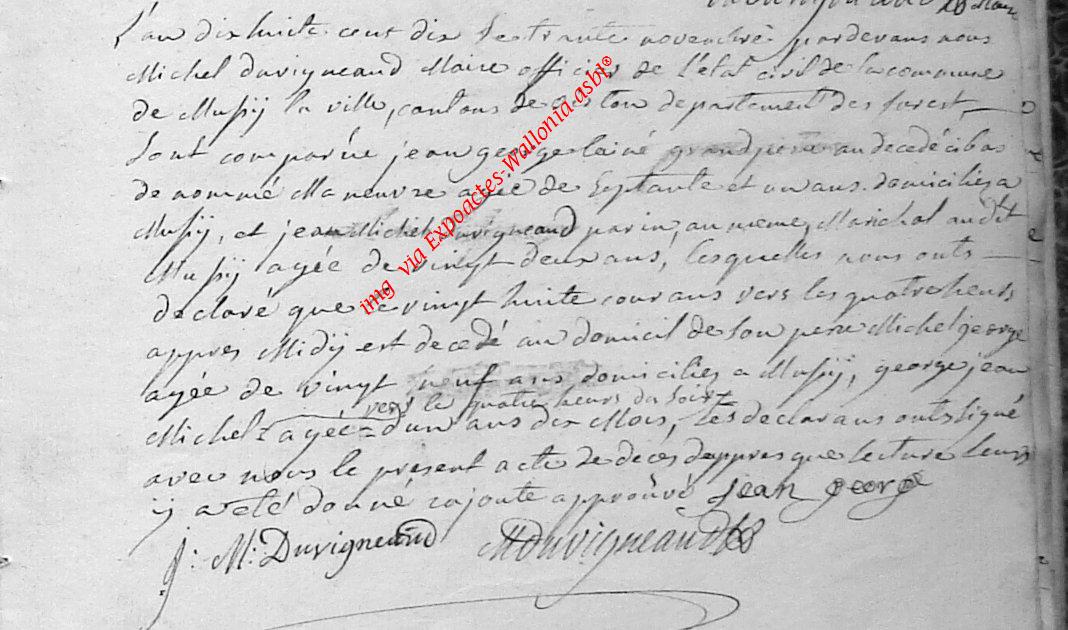 L'an dix huite cent dix le trante novembre pardevans nous
Michel Duvigneaud Maire officier de l'état civil de la commune
de Mussij la ville, cantons de departement des forest,
Sont comparüe jean george lainé grandpere au decedé cibas
de nommé Maneuvre agée de Septante et un ans domiciliés a
Mussij, et jean Michel Duvigneaud parin, au meme, Marichal audit
Mussij agée de vingt deux ans, lesquelles nous onts
declaré que le vingt huite courans vers les quatre heurs
appres Midij est decedé au domicil de son pere Michel george
agée de vingt neuf ans domiciliés a Mussij, george jean
vers le quatre heurs du soir
Michel agée d'un ans dix Mois, les declarans onts signé
avec nous le present acte de deces dappres que lecture leurs
ij a eté donné rajoute approûvé jean george
J: M: Duvigneaud MDuvigneaud
img via Expoactes-Wallonia-asbl®